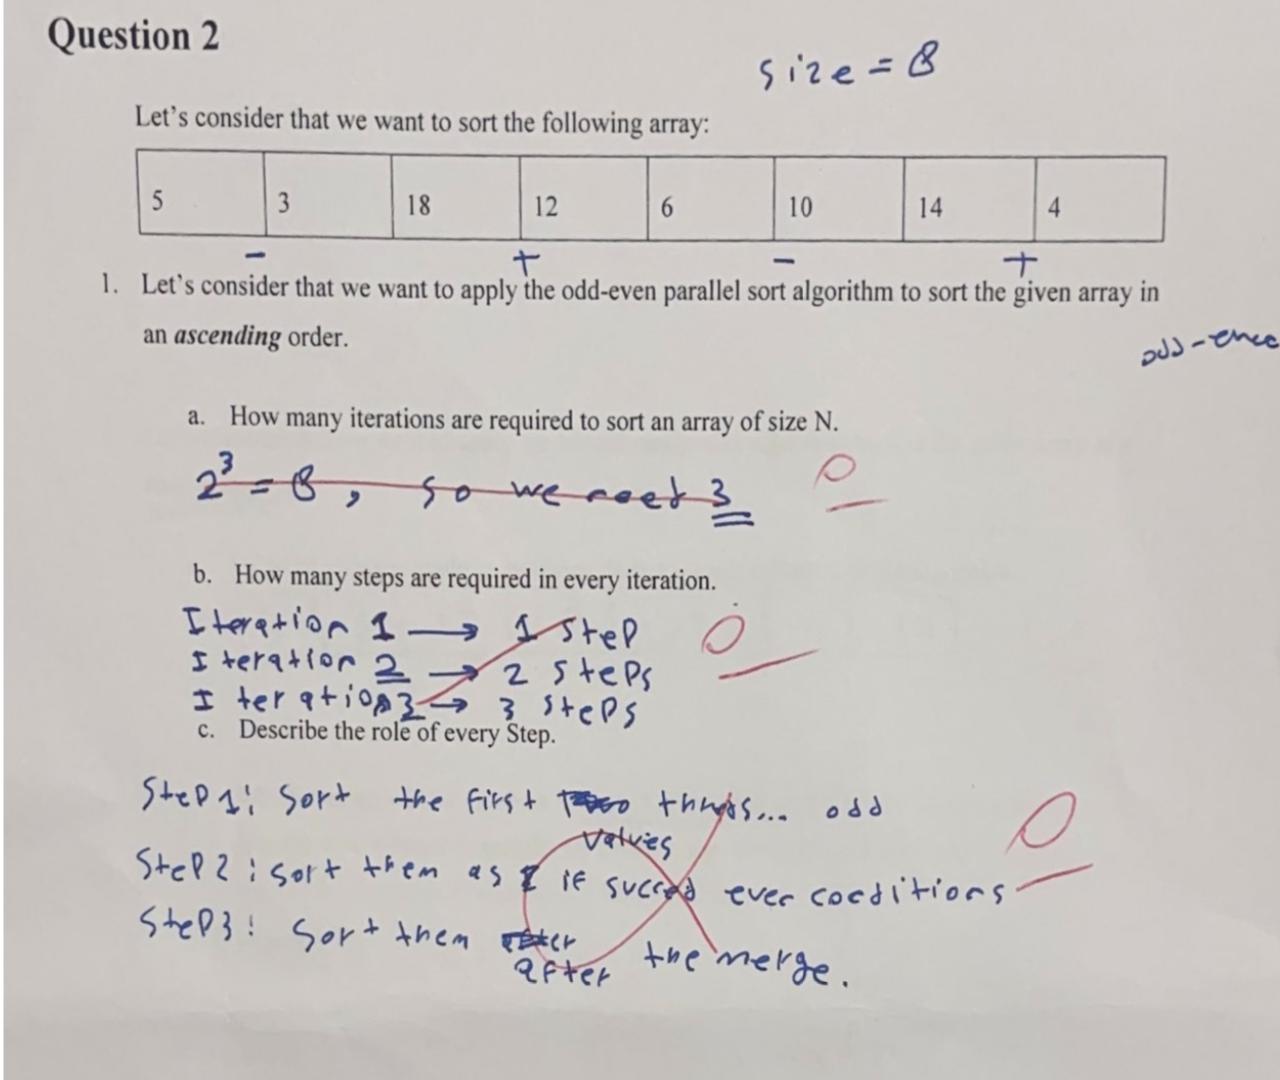 Question 2
size = 8
Let's consider that we want to sort the following array:
5 3 18 12 6 10 14 4
- + - +
1. Let's consider that we want to apply the odd-even parallel sort algorithm to sort the given array in
an ascending order.
a. How many iterations are required to sort an array of size N.
2³ = 8, so we need 3
0
b. How many steps are required in every iteration.
Iteration 1 → 1 step
0
Iteration 2 → 2 steps
Iteration 3 → 3 steps
c. Describe the role of every Step.
Step 1: Sort the first odd
0
values
Step 2: sort them as if even conditions
Step 3: Sort them
after the merge.